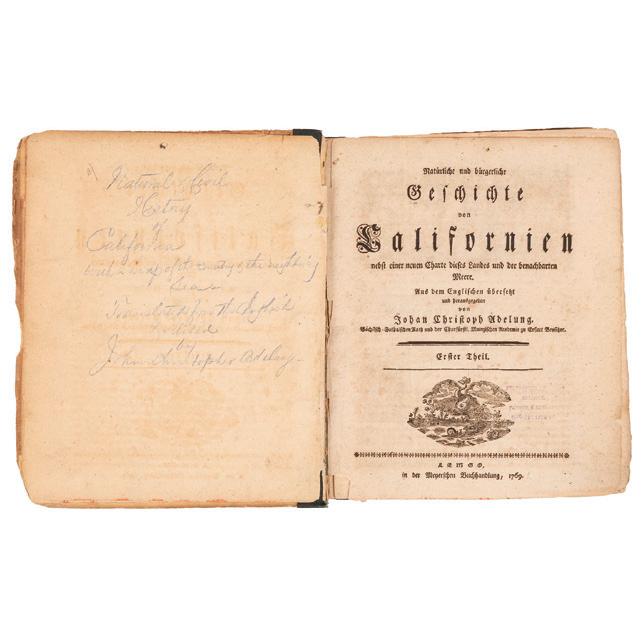 Natural & Civil
History
of
California
with a map of its country & the neighboring
Seas
Translated from the English
by
John Christopher Adelung.
Natürliche und bürgerliche
Geschichte
von
Californien
nebst einer neuen Charte dieses Landes und der benachbarten
Meere.
Aus dem Englischen übersetzt
und herausgegeben
von
Johan Christoph Adelung.
Sächsisch-Gothaischen Rath und der Churfürstl. Maynzischen Academie zu Erfurt Beysitzer.
Erster Theil.
LEMGO,
in der Meyerschen Buchhandlung, 1769.